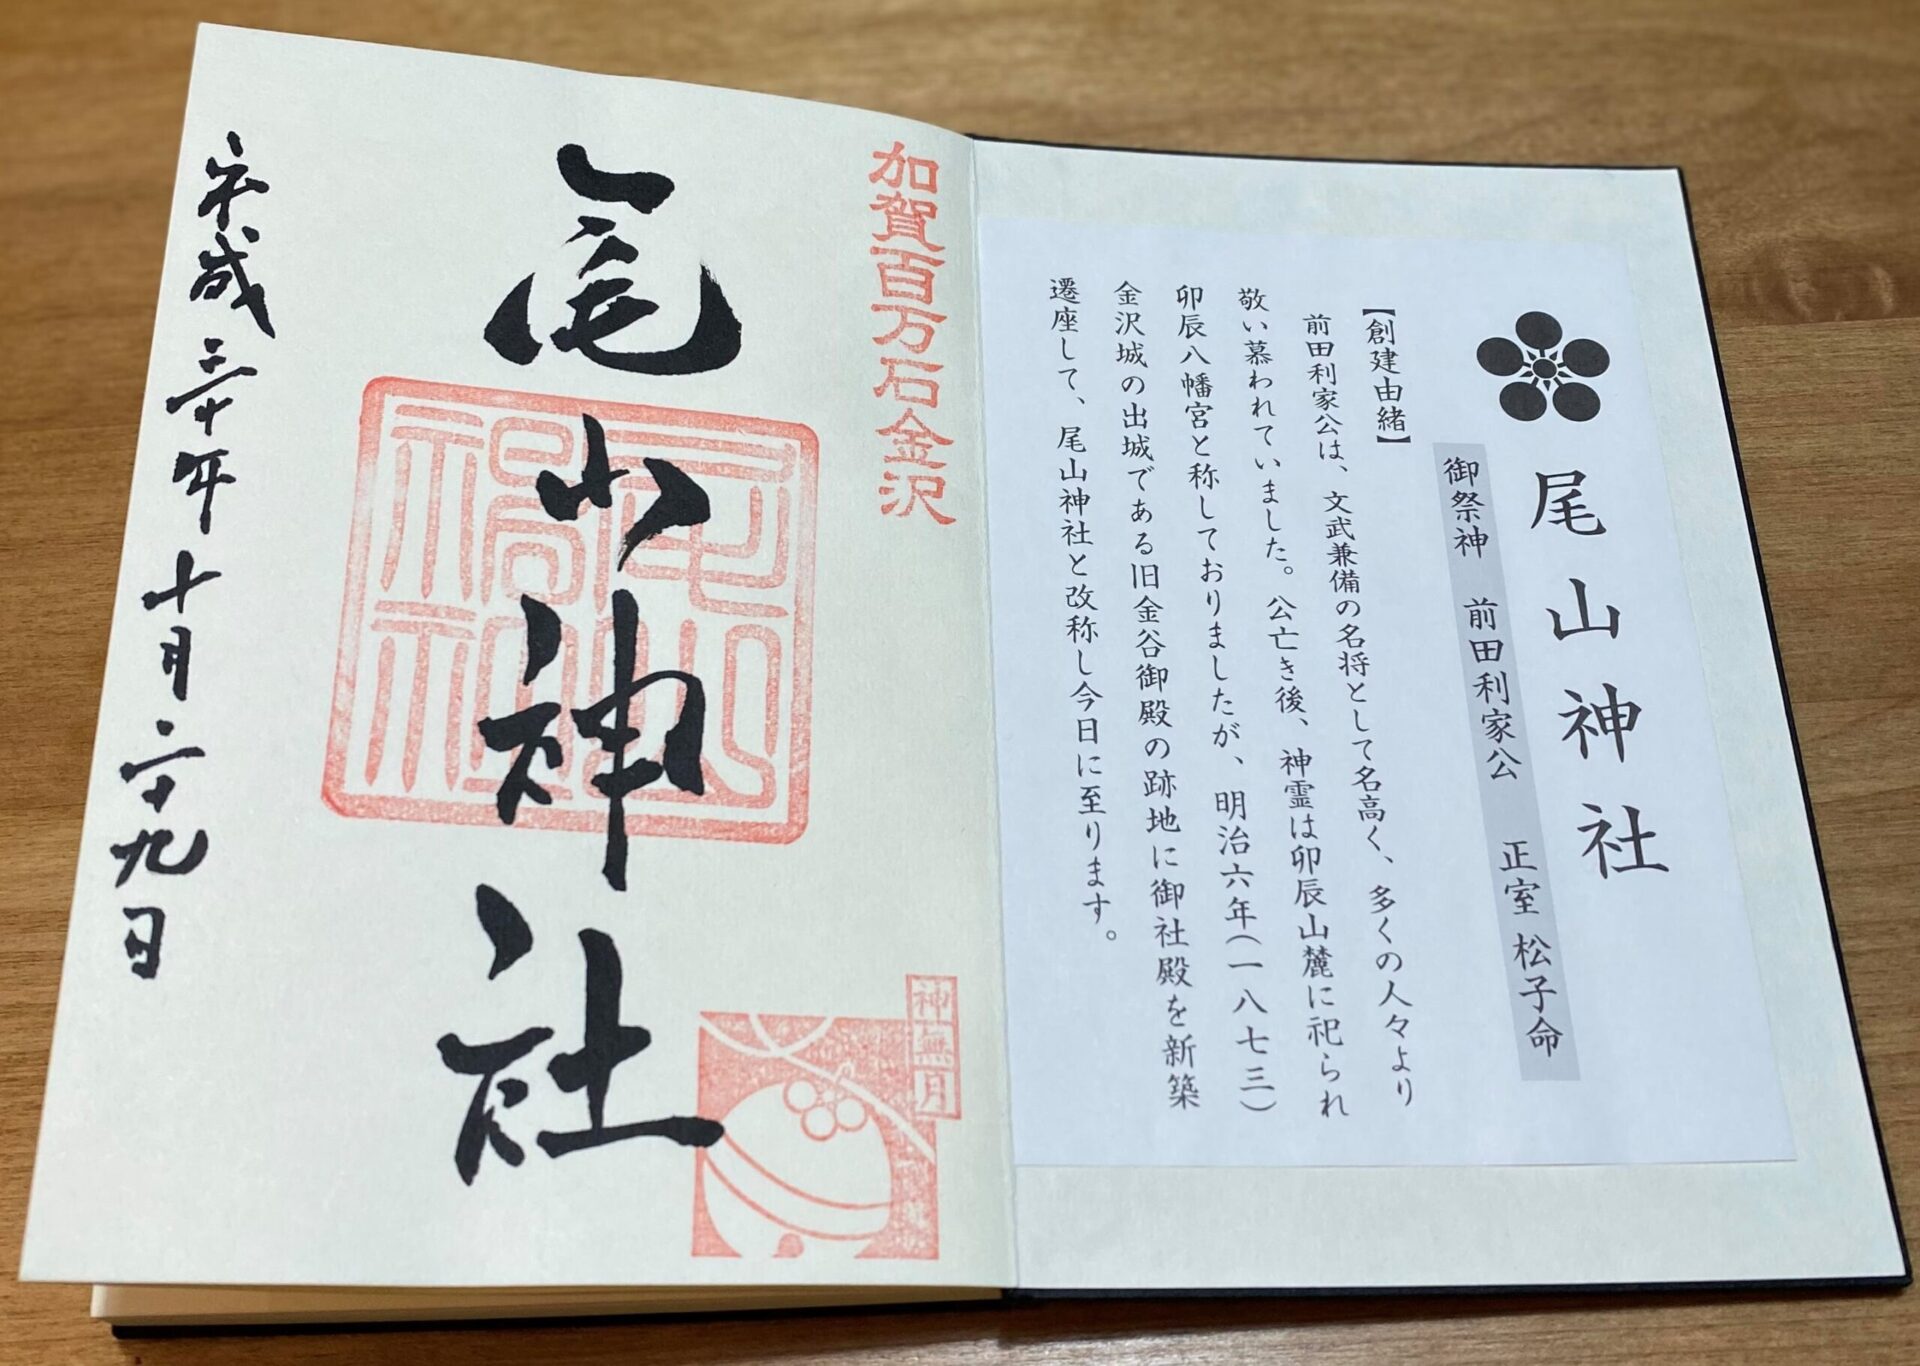 尾山神社
御祭神　前田利家公　正室 松子命
【創建由緒】
前田利家公は、文武兼備の名将として名高く、多くの人々より
敬い慕われていました。公亡き後、神霊は卯辰山麓に祀られ
卯辰八幡宮と称しておりましたが、明治六年(一八七三)
金沢城の出城である旧金谷御殿の跡地に御社殿を新築
遷座して、尾山神社と改称し今日に至ります。
加賀百万石金沢
神無月
尾山神社
平成三十年十月二十九日